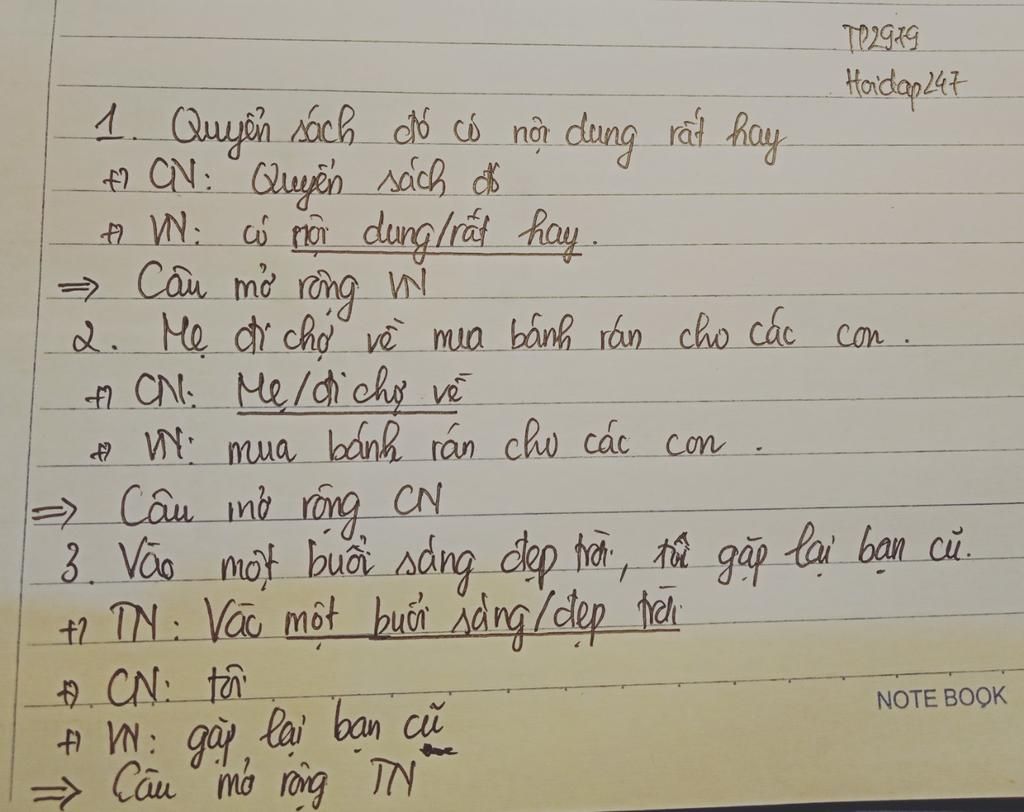 TP2979
Hoidap247
1. Quyển sách đó có nội dung rất hay
+) CN: Quyển sách đó
+) VN: có nội dung/rất hay.
=> Câu mở rộng VN
2. Mẹ đi chợ về mua bánh rán cho các con.
+) CN: Mẹ/đi chợ về
+) VN: mua bánh rán cho các con.
=> Câu mở rộng CN
3. Vào một buổi sáng đẹp trời, tôi gặp lại bạn cũ.
+) TN: Vào một buổi sáng/đẹp trời
+) CN: tôi
NOTE BOOK
+) VN: gặp lại bạn cũ
=> Câu mở rộng TN